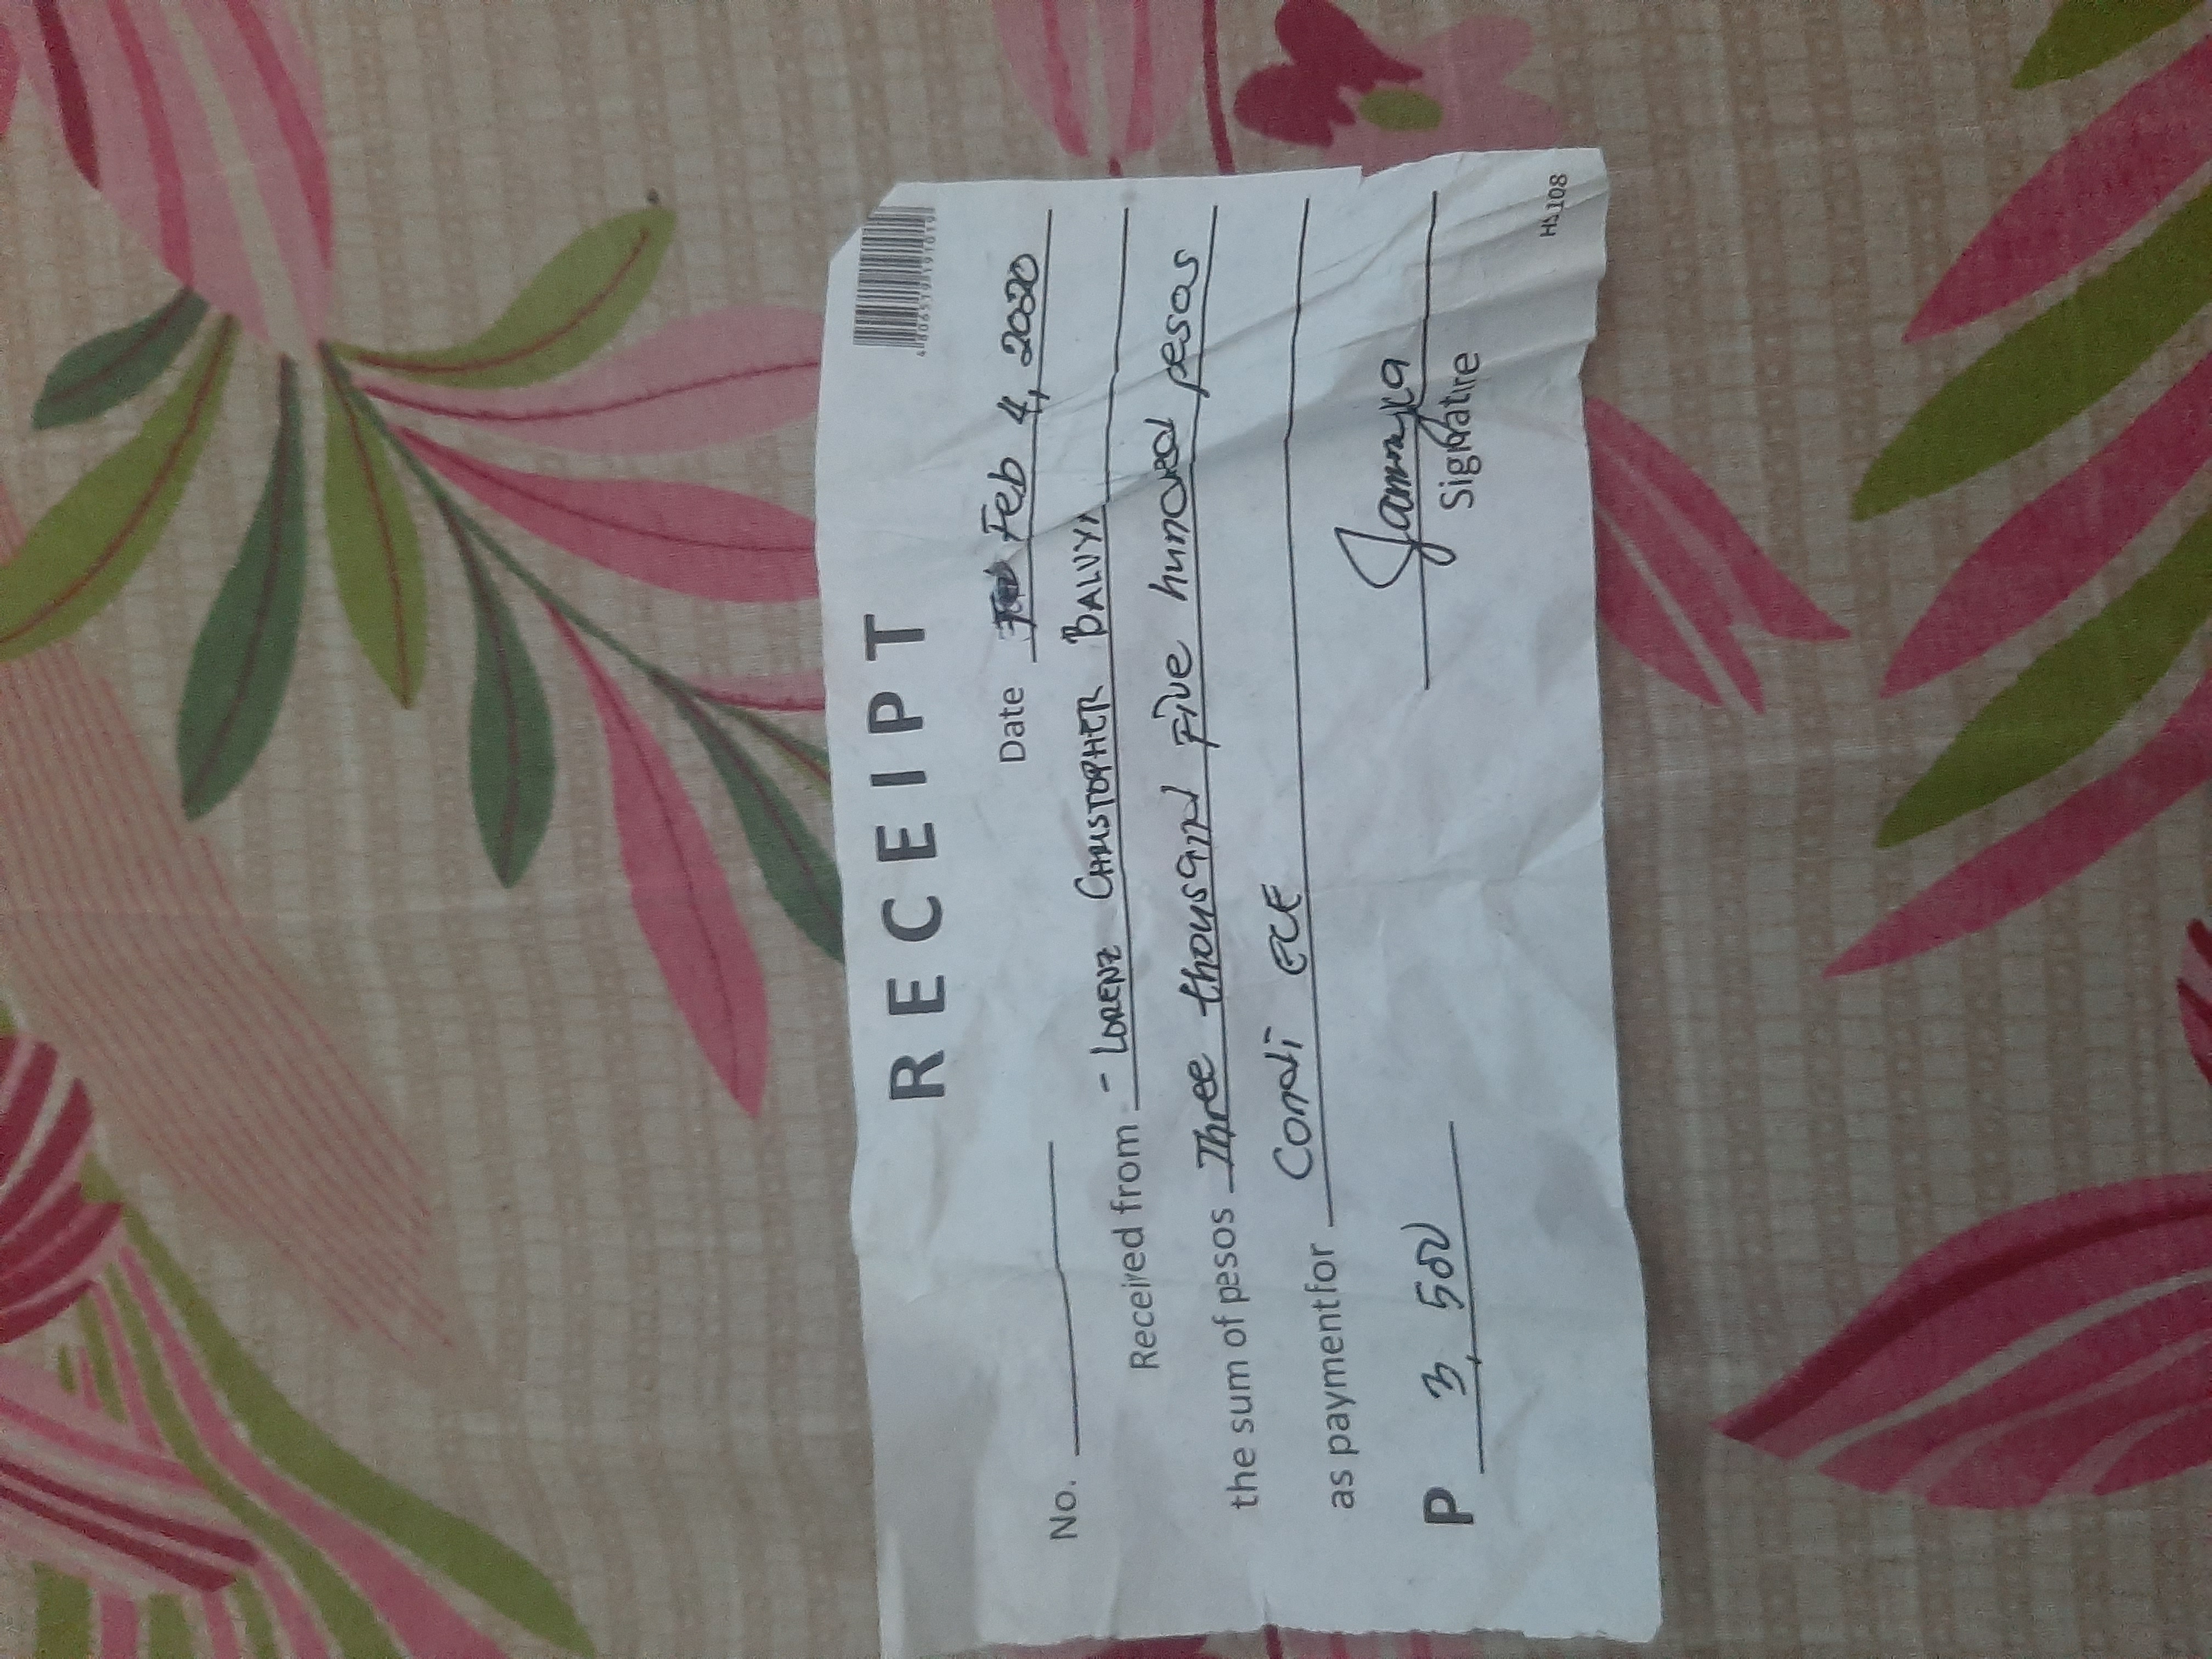 RECEIPT
4806519191019
Date Feb 4, 2020
No.
Received from - LORENZ CHRISTOPHER
the sum of pesos Three thousand Five hundred pesos
as payment for Condi ECE
P 3,500
Jammyka
Signature
HS 108